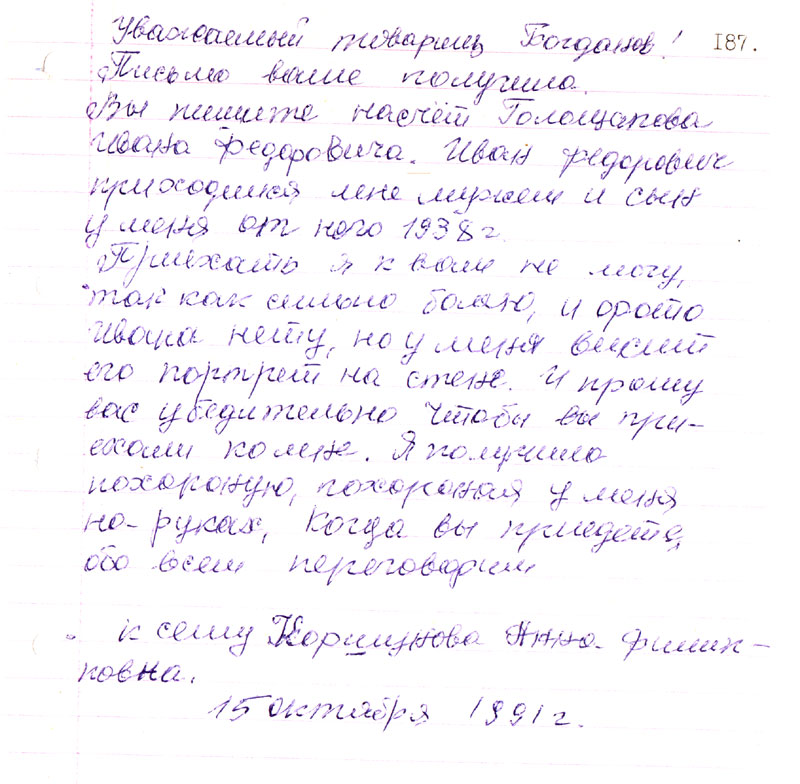 Уважаемый товарищ Богданов! 187.
Письмо ваше получила.
Вы пишите насчёт Голощапова
Ивана Федоровича. Иван Федорович
приходится мене мужем и сын
у меня от него 1938 г.
Приехать я к вам не могу,
так как сильно болею, и фото
Ивана нету, но у меня висит
его портрет на стене. И прошу
вас убедительно чтобы вы при-
ехали ко мне. Я получила
похороную, похороная у меня
на-руках, Когда вы приедете,
обо всем переговорим
к сему Коршунова Анна Филип-
повна.
15 октября 1991 г.